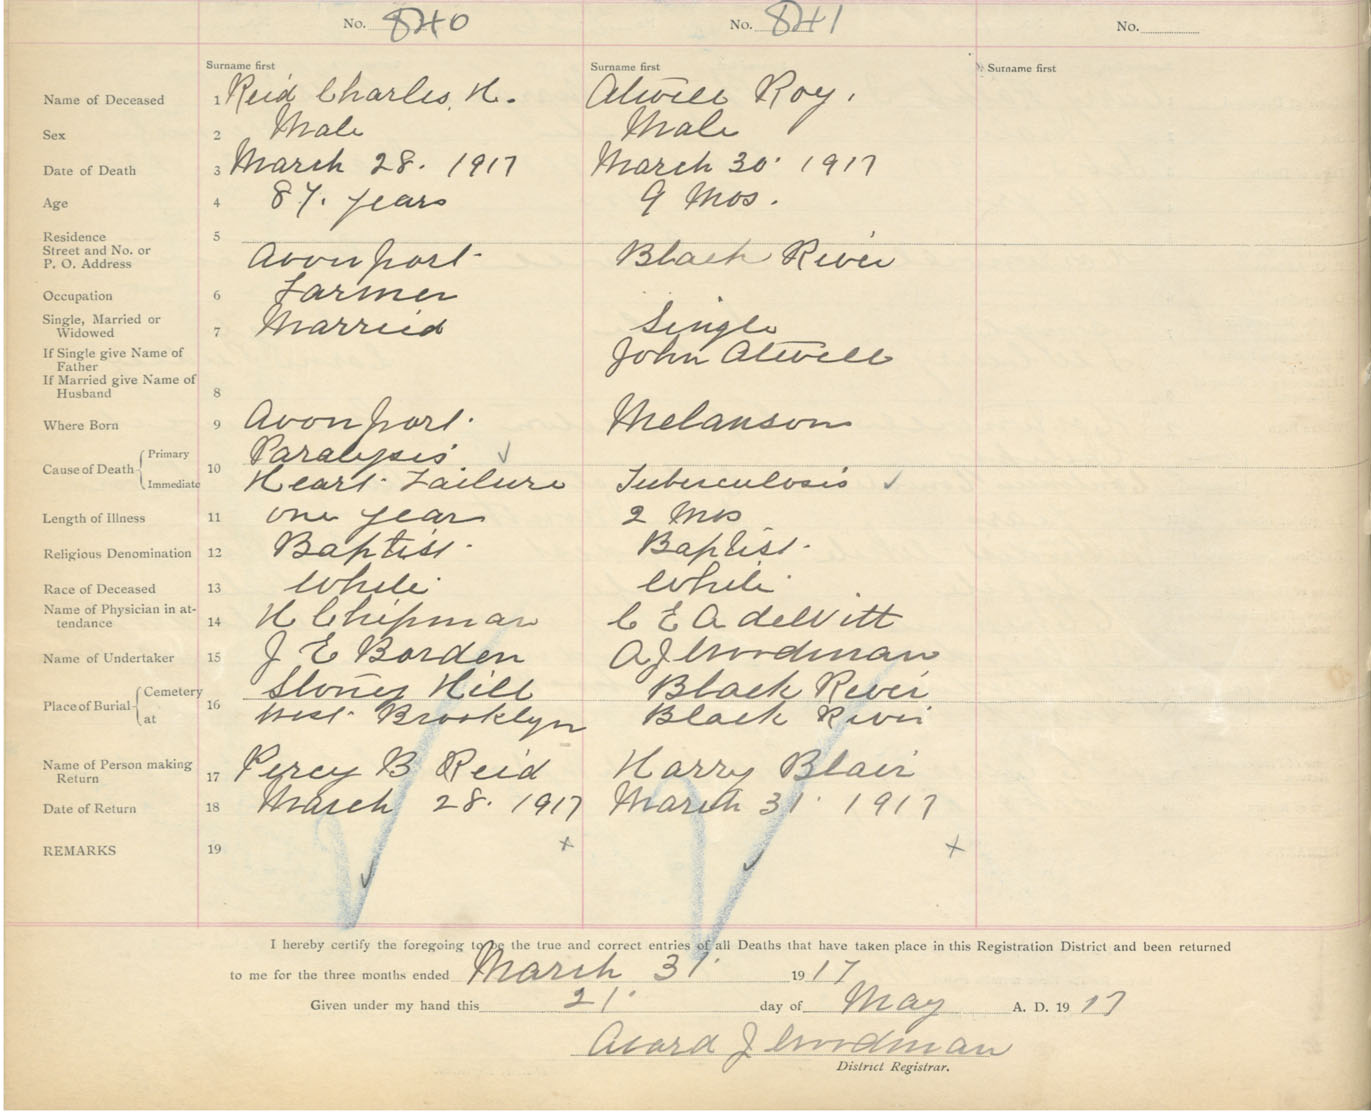 No. 840 No. 841 No.
Surname first Surname first Surname first
Name of Deceased 1 Reid Charles. H. Atwell Roy.
Sex 2 Male Male
Date of Death 3 March 28. 1917 March 30. 1917
Age 4 87. years 9 Mos.
Residence 5
Street and No. or
P. O. Address Avonport. Black River
Occupation 6 Farmer
Single, Married or
Widowed 7 Married Single
If Single give Name of
Father John Atwell
If Married give Name of
Husband 8
Where Born 9 Avonport. Melanson
Cause of Death Primary Paralysis
10
Immediate Heart Failure Tuberculosis
Length of Illness 11 one year 2 Mos
Religious Denomination 12 Baptist. Baptist.
Race of Deceased 13 White White
Name of Physician in at-
tendance 14 H Chipman C E A deWitt
Name of Undertaker 15 J E Borden A J Woodman
Place of Burial Cemetery Stoney Hill Black River
16
at West Brooklyn Black River
Name of Person making
Return 17 Percy B Reid Harry Blair
Date of Return 18 March 28. 1917 March 31. 1917
REMARKS 19 x x
I hereby certify the foregoing to be the true and correct entries of all Deaths that have taken place in this Registration District and been returned
to me for the three months ended March 31. 1917
Given under my hand this 21. day of May A. D. 1917
Avard J Woodman
District Registrar.